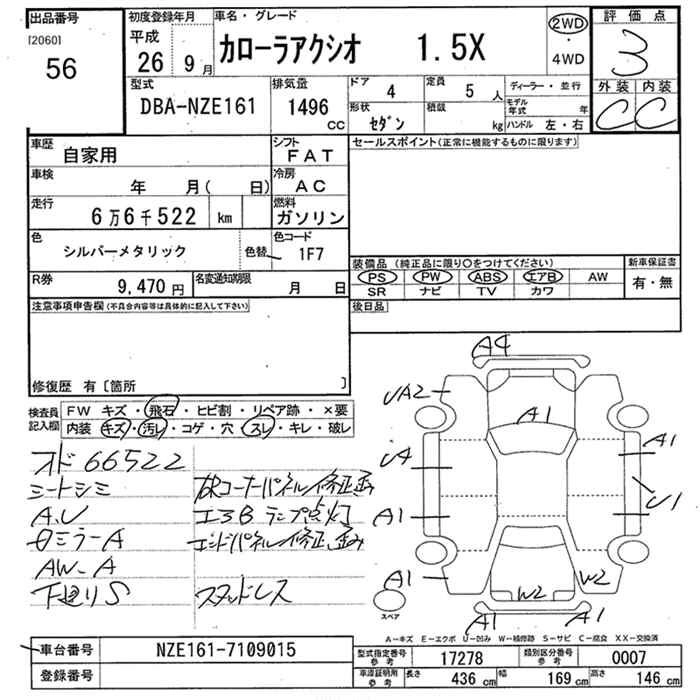 出品番号
[2060]
56
初度登録年月
平成
26年 9月
車名・グレード
カローラアクシオ 1.5X
2WD
・
4WD
評価点
3
外装 内装
C C
型式
DBA-NZE161
排気量
1496
CC
ドア
4
定員
5 人
形状
セダン
積載
kg
ディーラー・並行
モデル年式 年
ハンドル 左・右
車歴
自家用
シフト
FAT
車検
年 月( 日)
冷房
AC
走行
6万6千522 km
燃料
ガソリン
色
シルバーメタリック
色替
色コード
1F7
R券
9,470 円
名変通知期限
月 日
セールスポイント(正常に機能するものに限ります)
装備品(純正品に限り○をつけてください)
PS PW ABS エアB AW
SR ナビ TV カワ
新車保証書
有・無
後日品
注意事項申告欄(不具合内容等は具体的に記入して下さい)
修復歴 有〔箇所 〕
検査員記入欄
FW キズ・飛石・ヒビ割・リペア跡・×要
内装 キズ・汚レ・コゲ・穴・スレ・キレ・破レ
オド 66522
シートシミ
A.U
ミラーA
AW-A
下廻りS
コーナーパネル修正歪み
エアB ランプ点灯
エンドパネル修正歪み
スタッドレス
A4
UA2
A1
UA
A1
A1
U1
A1
W2
W2
A1
A1
スペア
A-キズ E-エクボ U-凹み W-補修跡 S-サビ C-腐食 XX-交換済
車台番号
NZE161-7109015
登録番号
型式指定番号
参考
17278
類別区分番号
参考
0007
車庫証明用
参考
長さ
436 cm
幅
169 cm
高さ
146 cm